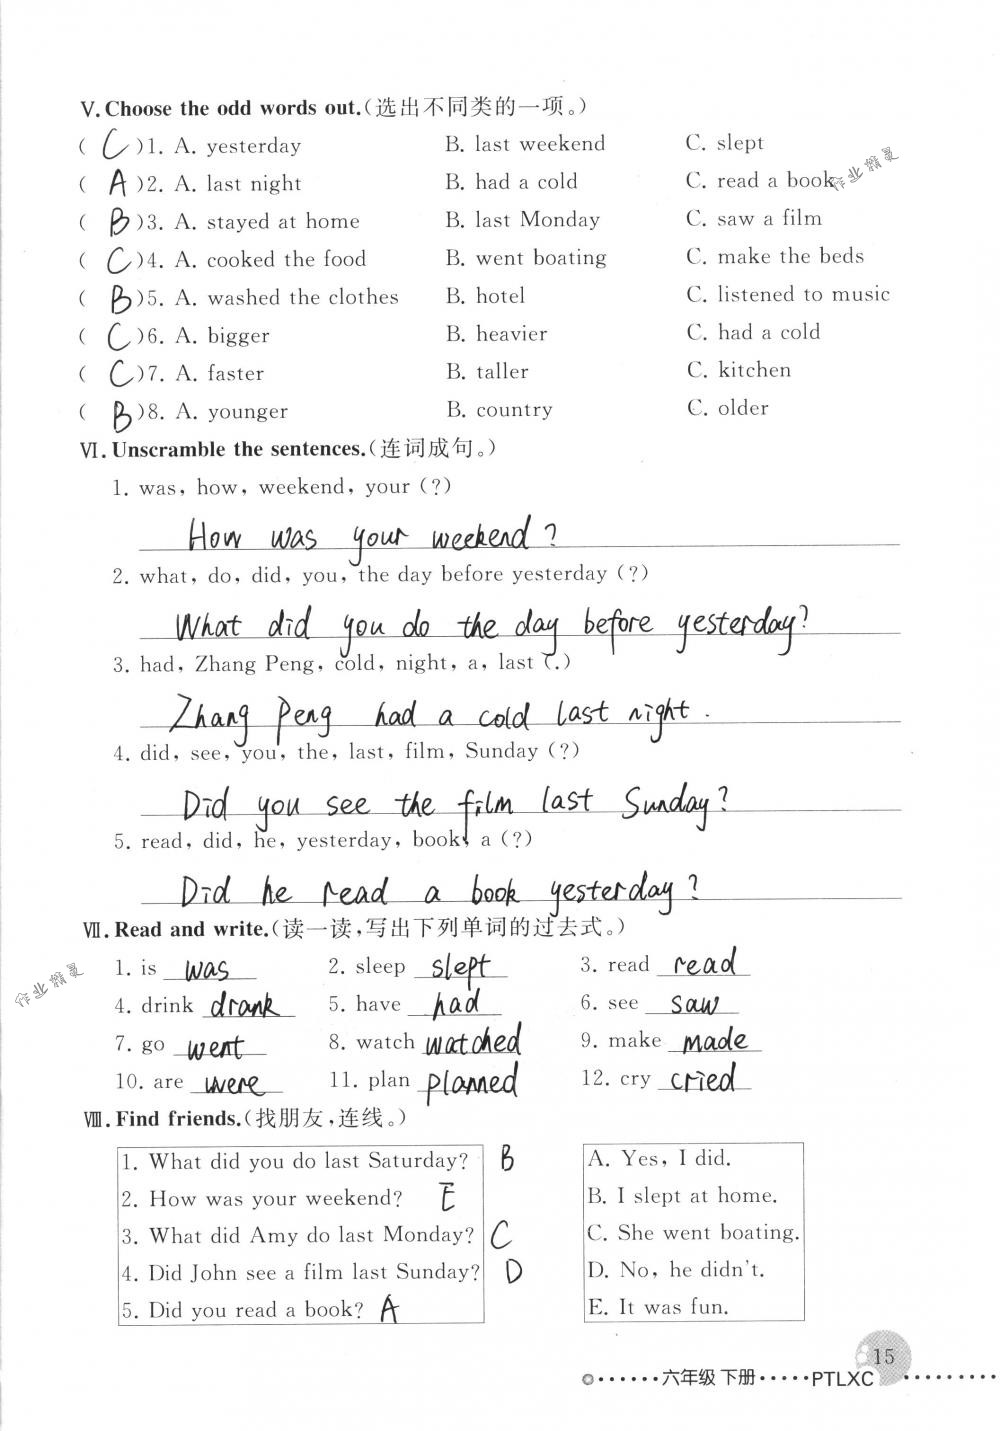 Ⅴ. Choose the odd words out.(选出不同类的一项。)
( C )1. A. yesterday B. last weekend C. slept
( A )2. A. last night B. had a cold C. read a book
作业精灵
( B )3. A. stayed at home B. last Monday C. saw a film
( C )4. A. cooked the food B. went boating C. make the beds
( B )5. A. washed the clothes B. hotel C. listened to music
( C )6. A. bigger B. heavier C. had a cold
( C )7. A. faster B. taller C. kitchen
( B )8. A. younger B. country C. older
Ⅵ. Unscramble the sentences.(连词成句。)
1. was, how, weekend, your (?)
How was your weekend?
2. what, do, did, you, the day before yesterday (?)
What did you do the day before yesterday?
3. had, Zhang Peng, cold, night, a, last (.)
Zhang Peng had a cold last night.
4. did, see, you, the, last, film, Sunday (?)
Did you see the film last Sunday?
5. read, did, he, yesterday, book, a (?)
Did he read a book yesterday?
Ⅶ. Read and write.(读一读,写出下列单词的过去式。)
作业精灵
1. is was 2. sleep slept 3. read read
4. drink drank 5. have had 6. see saw
7. go went 8. watch watched 9. make made
10. are were 11. plan planned 12. cry cried
Ⅷ. Find friends.(找朋友,连线。)
1. What did you do last Saturday? B A. Yes, I did.
2. How was your weekend? E B. I slept at home.
3. What did Amy do last Monday? C C. She went boating.
4. Did John see a film last Sunday? D D. No, he didn't.
5. Did you read a book? A E. It was fun.
15
六年级 下册 PTLXC